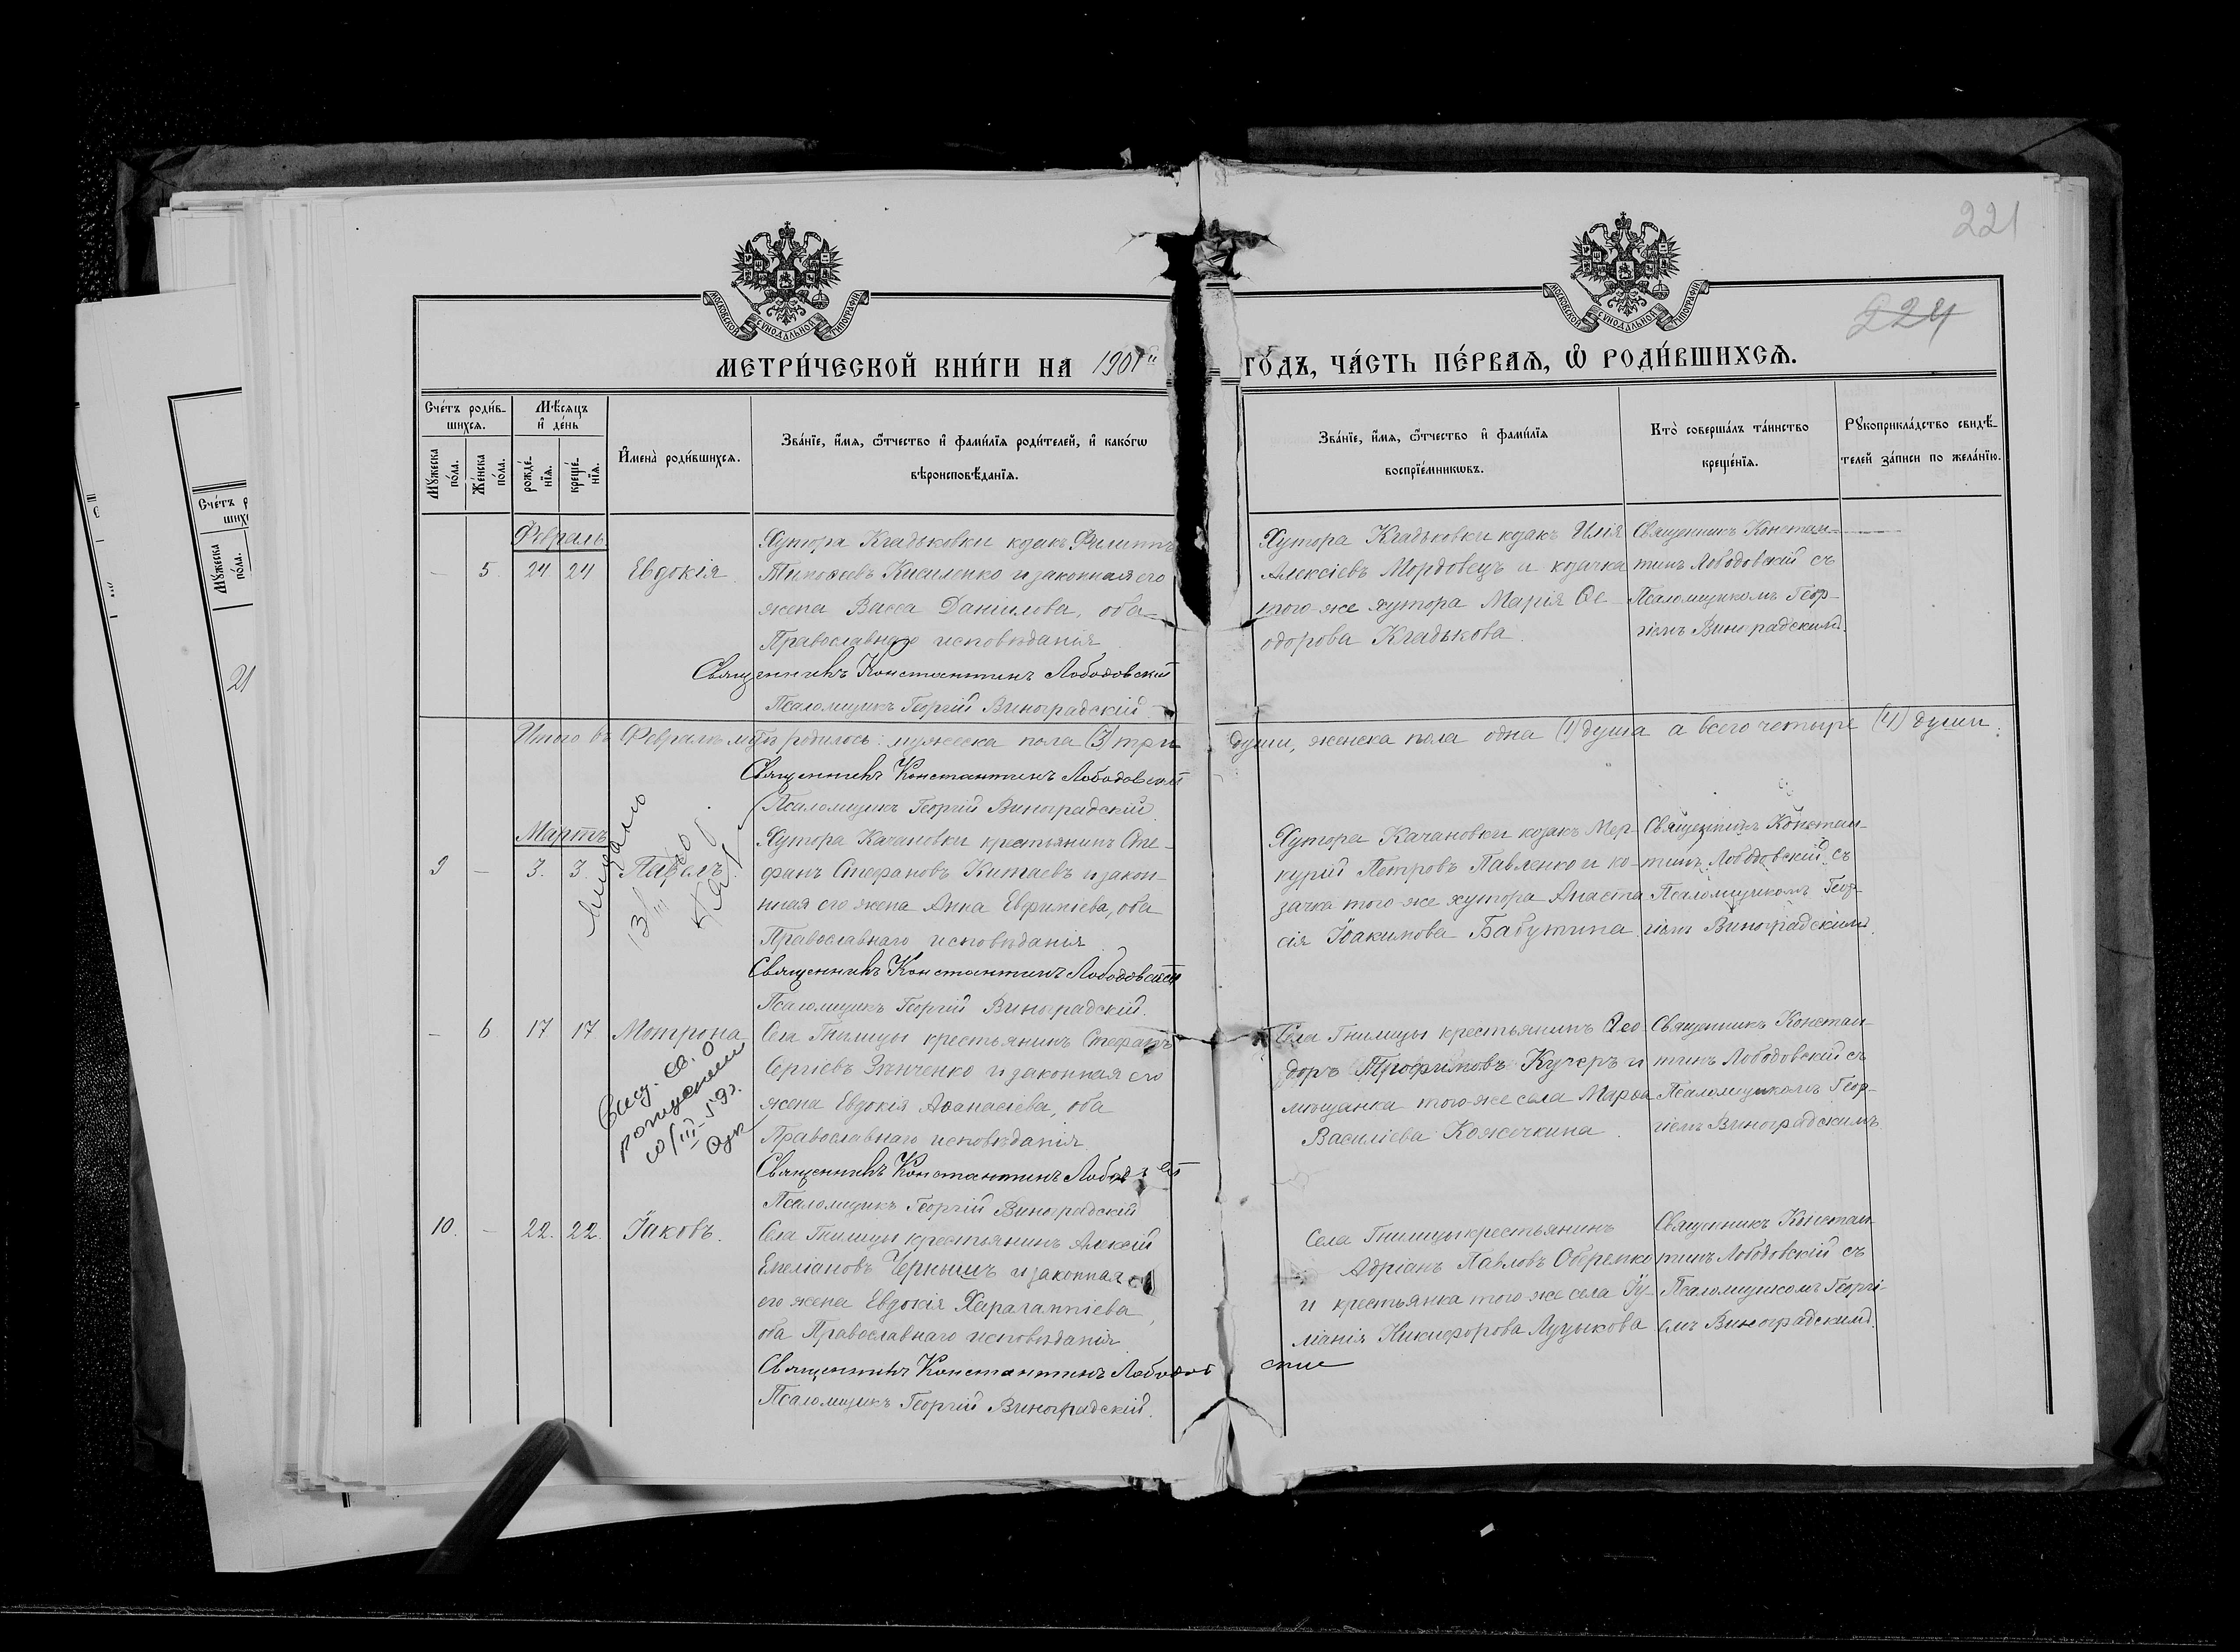 221
224
МОСКОВСКОЙ СУНОДАЛЬНОЙ ТИПОГРАФІИ
МОСКОВСКОЙ СУНОДАЛЬНОЙ ТИПОГРАФІИ
МЕТРИ́ЧЕСКОЙ КНИ́ГИ НА 1901й ГО́ДЪ, ЧА́СТЬ ПЕ́РВАѦ, Ѡ҆ РОДИ́ВШИХСѦ.
Сче́тъ роди́в-
шихсѧ.
Мѣ́сяцъ
и҆ де́нь
Мꙋ́жеска
по́ла.
Же́нска
по́ла.
рожде́-
нїѧ.
креще́-
нїѧ.
И҆мена̀ роди́вшихсѧ.
Зва́нїе, и҆́мѧ, ѻ҆́тчество и҆ фами́лїѧ роди́телей, и҆ како́гѡ
вѣроисповѣ́данїѧ.
Зва́нїе, и҆́мѧ, ѻ҆́тчество и҆ фами́лїѧ
воспрїе́мникѡвъ.
Кто̀ соверша́лъ та́инство
креще́нїѧ.
Рꙋкоприкла́дство свидѣ́-
телей за́писи по жела́нїю.
Февраль
- 5 24 24 Евдокія
Хутора Кгадьковки козакъ Филиппъ
Тимоѳеевъ Кисиленко и законная его
жена Васса Даніилова, оба
Православнаго исповѣданія
Священникъ Константинъ Лободовскій
Псаломщикъ Георгій Виноградскій
Хутора Кгадьковки козакъ Илія
Алексіевъ Мордовецъ и козачка
того-же хутора Марія Ѳе-
одорова Кгадькова.
Священникъ Констан-
тинъ Лободовскій съ
Псаломщикомъ Геор-
гіемъ Виноградскимъ.
Итого въ Февралѣ м-цѣ родилось: мужеска пола (3) три души, женска пола одна (1) душа а всего четыре (4) души.
Священникъ Константинъ Лободовскій
Псаломщикъ Георгій Виноградскій
Мартъ
9 - 3. 3. Павелъ
13/III
Хутора Качановки крестьянинъ Сте-
фанъ Стефановъ Китаевъ и закон-
ная его жена Анна Евфиміева, оба
Православнаго исповѣданія
Священникъ Константинъ Лободовскій
Псаломщикъ Георгій Виноградскій.
Хутора Качановки козакъ Мер-
курій Петровъ Павленко и ко-
зачка того-же хутора Анаста
сія Іоакимова Бабутина
Священникъ Констан-
тинъ Лободовскій съ
Псаломщикомъ Геор-
гіемъ Виноградскимъ.
- 6 17 17 Мотрона
Выд. св. о
рождении
10/III-59г.
Села Гнилицы крестьянинъ Стефанъ
Сергіевъ Зѣнченко и законная его
жена Евдокія Аѳанасіева, оба
Православнаго исповѣданія
Священникъ Константинъ
Псаломщикъ Георгій Виноградскій
Села Гнилицы крестьянинъ Ѳео-
доръ Трофимовъ Кучеръ и
мѣщанка того-же села Марѳа
Василіева Кожечкина.
Священникъ Констан-
тинъ Лободовскій съ
Псаломщикомъ Геор-
гіемъ Виноградскимъ
10. - 22. 22. Іаковъ.
Села Гнилицы крестьянинъ Алексій
Емеліановъ Чернышъ и законная
его жена Евдокія Харалампіева,
оба Православнаго исповѣданія
Священникъ Константинъ Лободовскій
Псаломщикъ Георгій Виноградскій.
Села Гнилицы крестьянинъ
Адріанъ Павловъ Оберемко
и крестьянка того же села Іу-
ліанія Никифорова Лузыкова
Священникъ Констан-
тинъ Лободовскій съ
Псаломщикомъ Георгі-
емъ Виноградскимъ.
Сче́тъ
Мꙋ́жеска
по́ла.
21